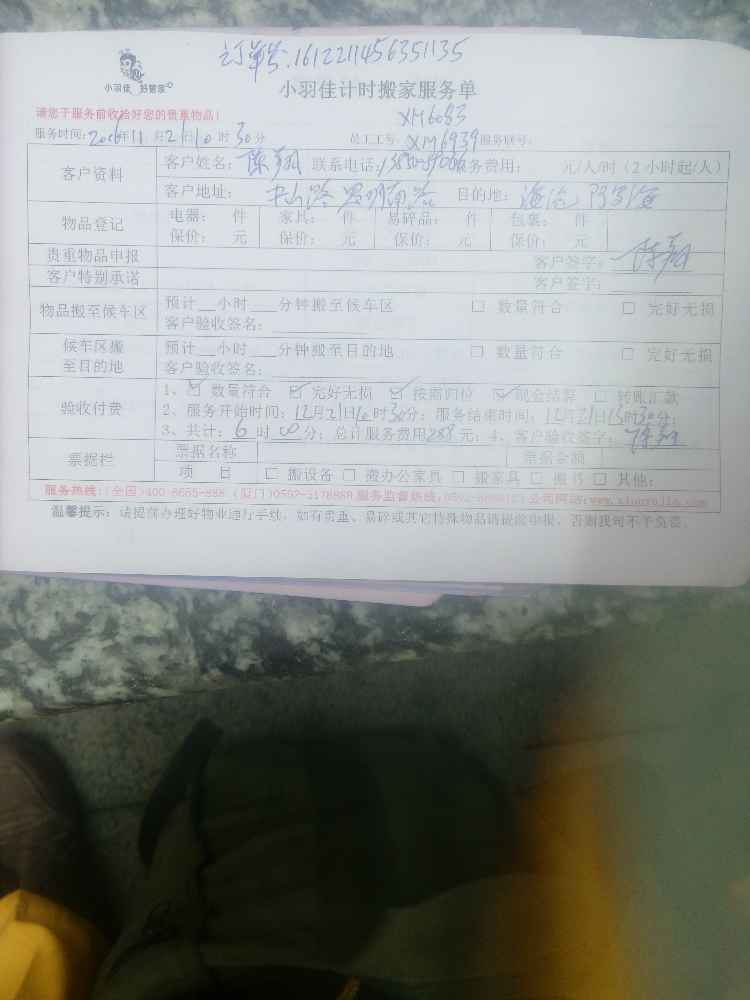 订单号:1612211456351135
小羽佳 好管家
小羽佳计时搬家服务单
请您于服务前收拾好您的贵重物品!
XM6083
服务时间: 2016年11月21日10时30分 员工工号: XM6939 服务联号:
客户资料 客户姓名: 陈翔 联系电话: 服务费用: 元/人/时(2小时起/人)
客户地址: 中山路 目的地:
物品登记 电器: 件 家具: 件 易碎品: 件 包裹: 件
保价: 元 保价: 元 保价: 元 保价: 元
贵重物品申报 客户签字: 陈翔
客户特别承诺 客户签字:
物品搬至候车区 预计__小时___分钟搬至候车区 □ 数量符合 □ 完好无损
客户验收签名:
候车区搬至目的地 预计__小时___分钟搬至目的地 □ 数量符合 □ 完好无损
客户验收签名:
验收付费 1、☑ 数量符合 ☑ 完好无损 ☑ 按需归位 ☑ 现金结算 □ 转账汇款
2、服务开始时间: 12月21日10时30分; 服务结束时间: 12月21日15时30分;
3、共计: 6时00分; 总计服务费用288元; 4、客户验收签字: 陈翔
票据栏 票据名称 票据金额
项 目 □ 搬设备 □ 搬办公家具 □ 搬家具 □ 搬书 □ 其他:
服务热线:(全国)400-8665-888 (厦门)0592-3178888 服务监督热线: 公司网站:www.xiaoyujia.com
温馨提示: 请提前办理好物业通行手续, 如有贵重、易碎或其它特殊物品请提前申报, 否则我司不予负责。